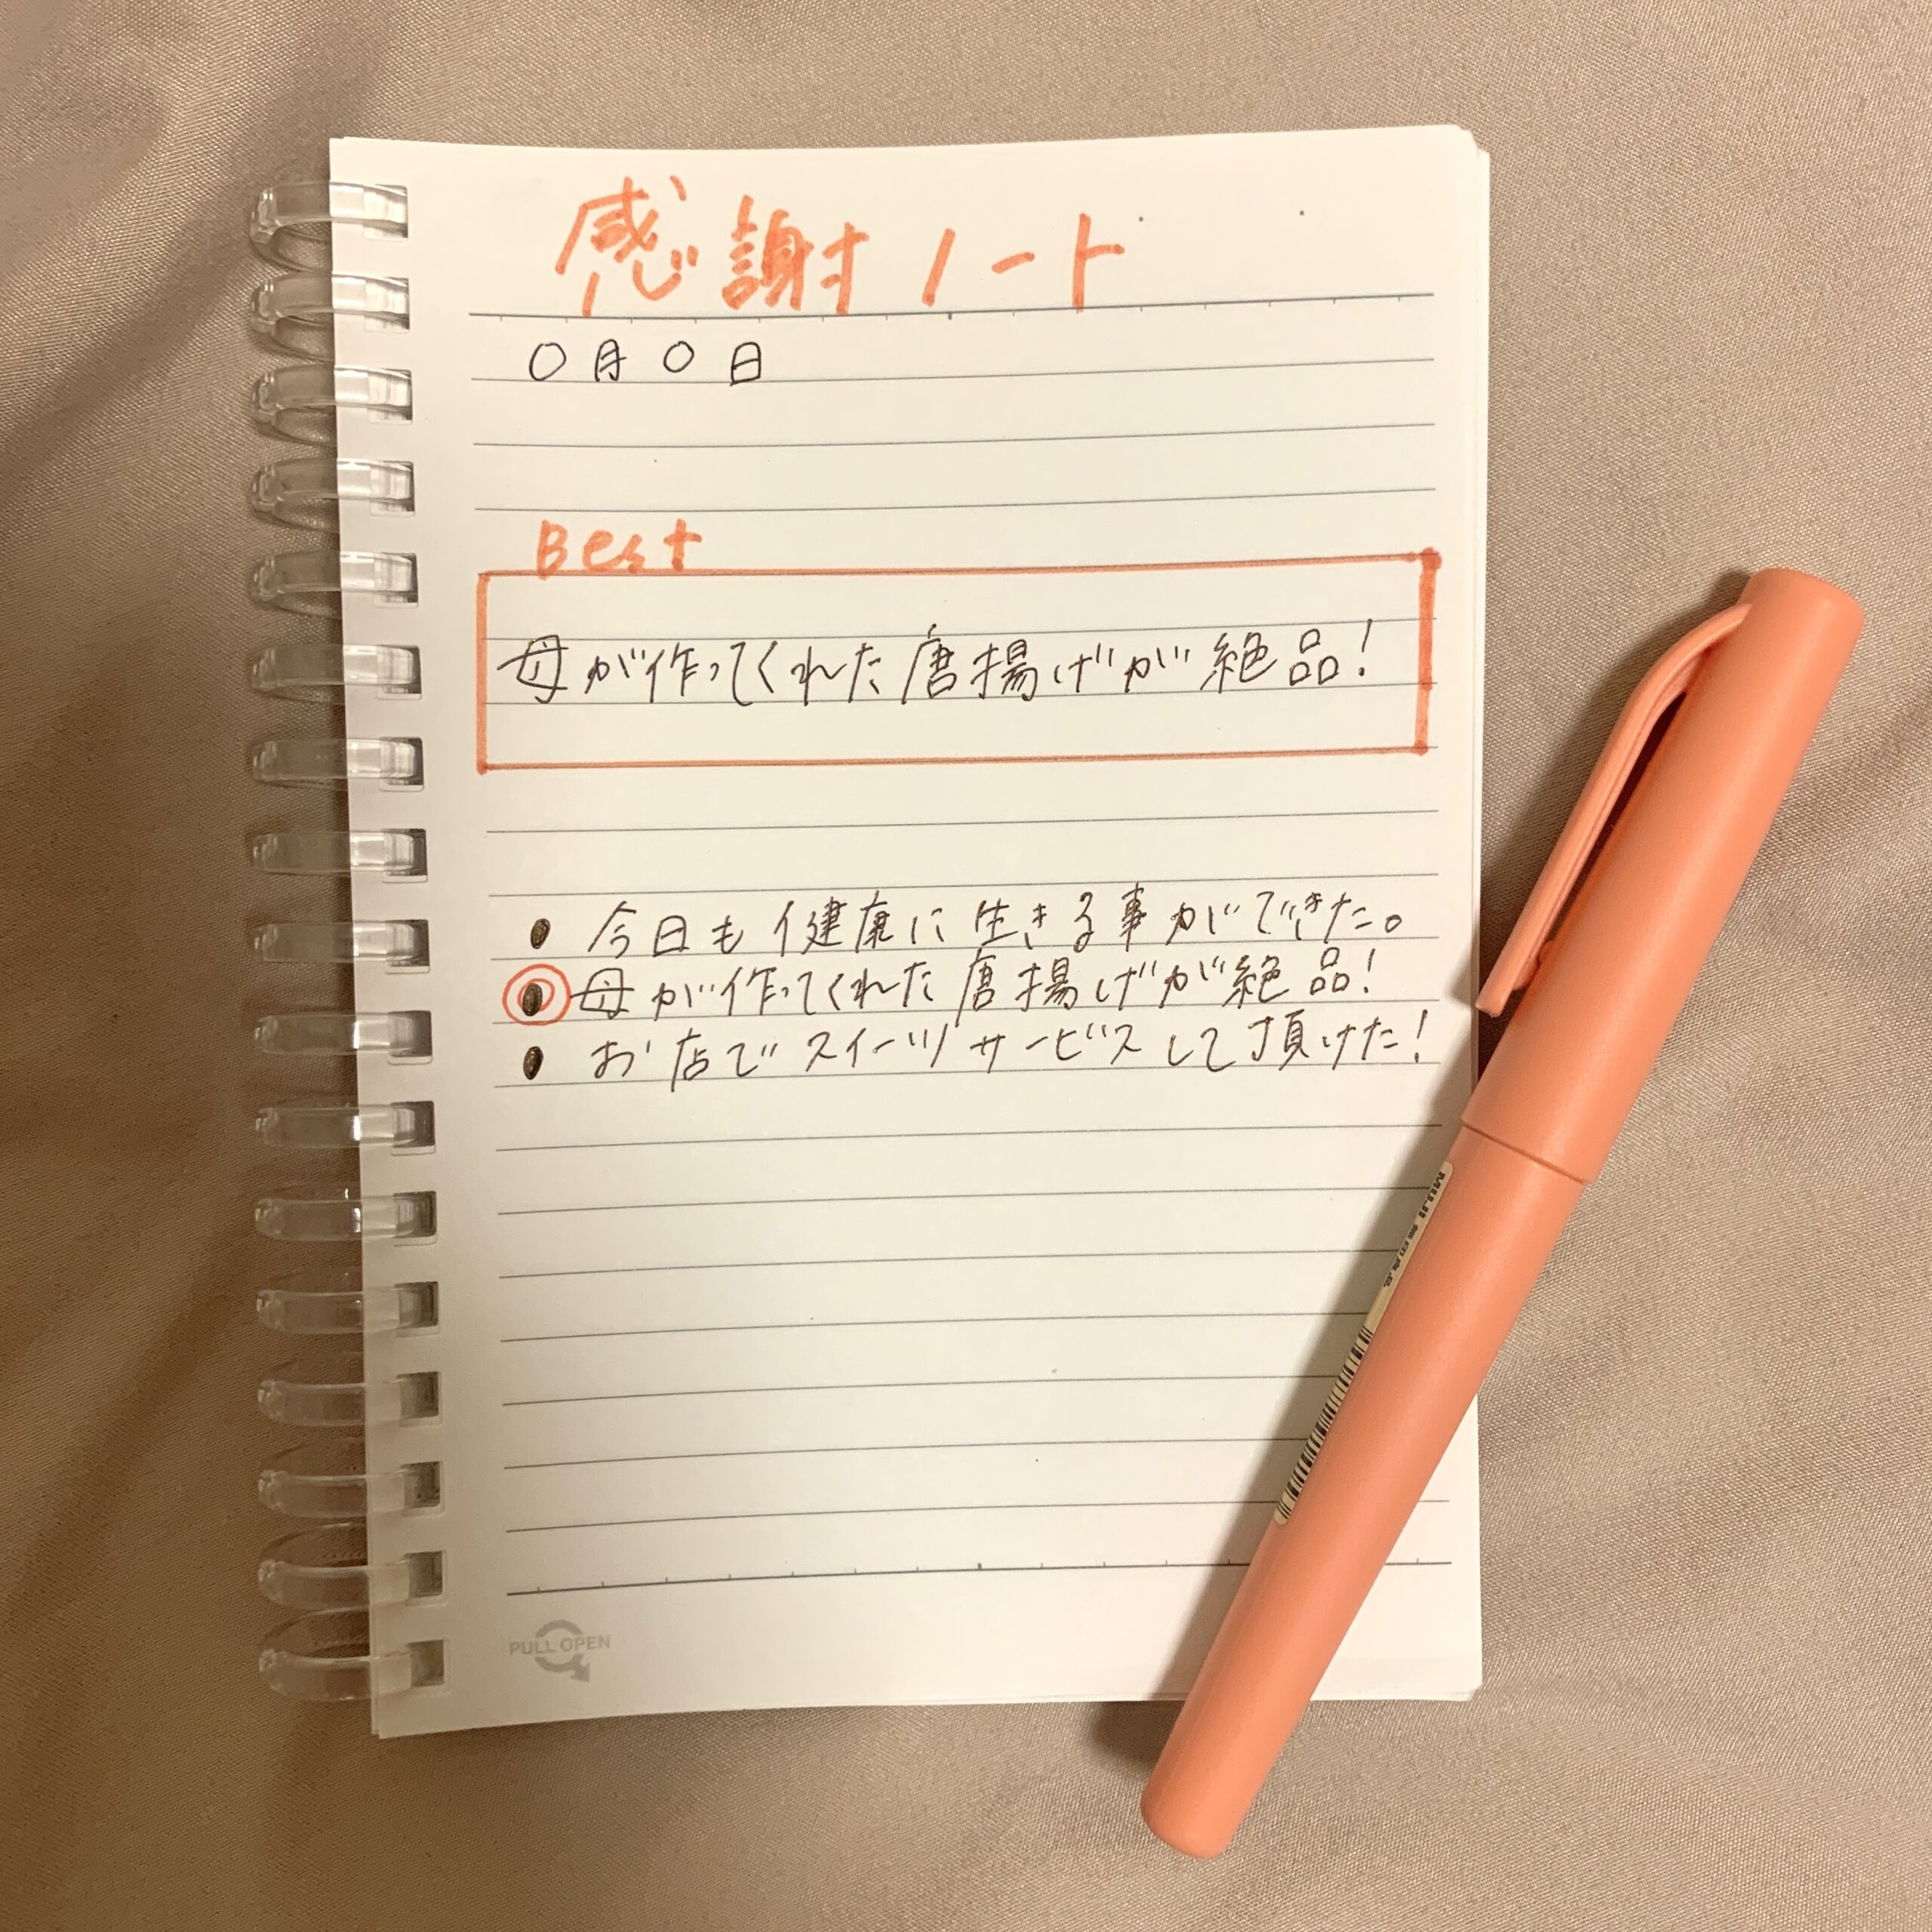 感謝ノート
〇月〇日
Best
母が作ってくれた唐揚げが絶品!
・今日も健康に生きる事ができた。
・母が作ってくれた唐揚げが絶品!
・お店でスイーツサービスして頂けた!
PULL OPEN
MUJI 無印良品